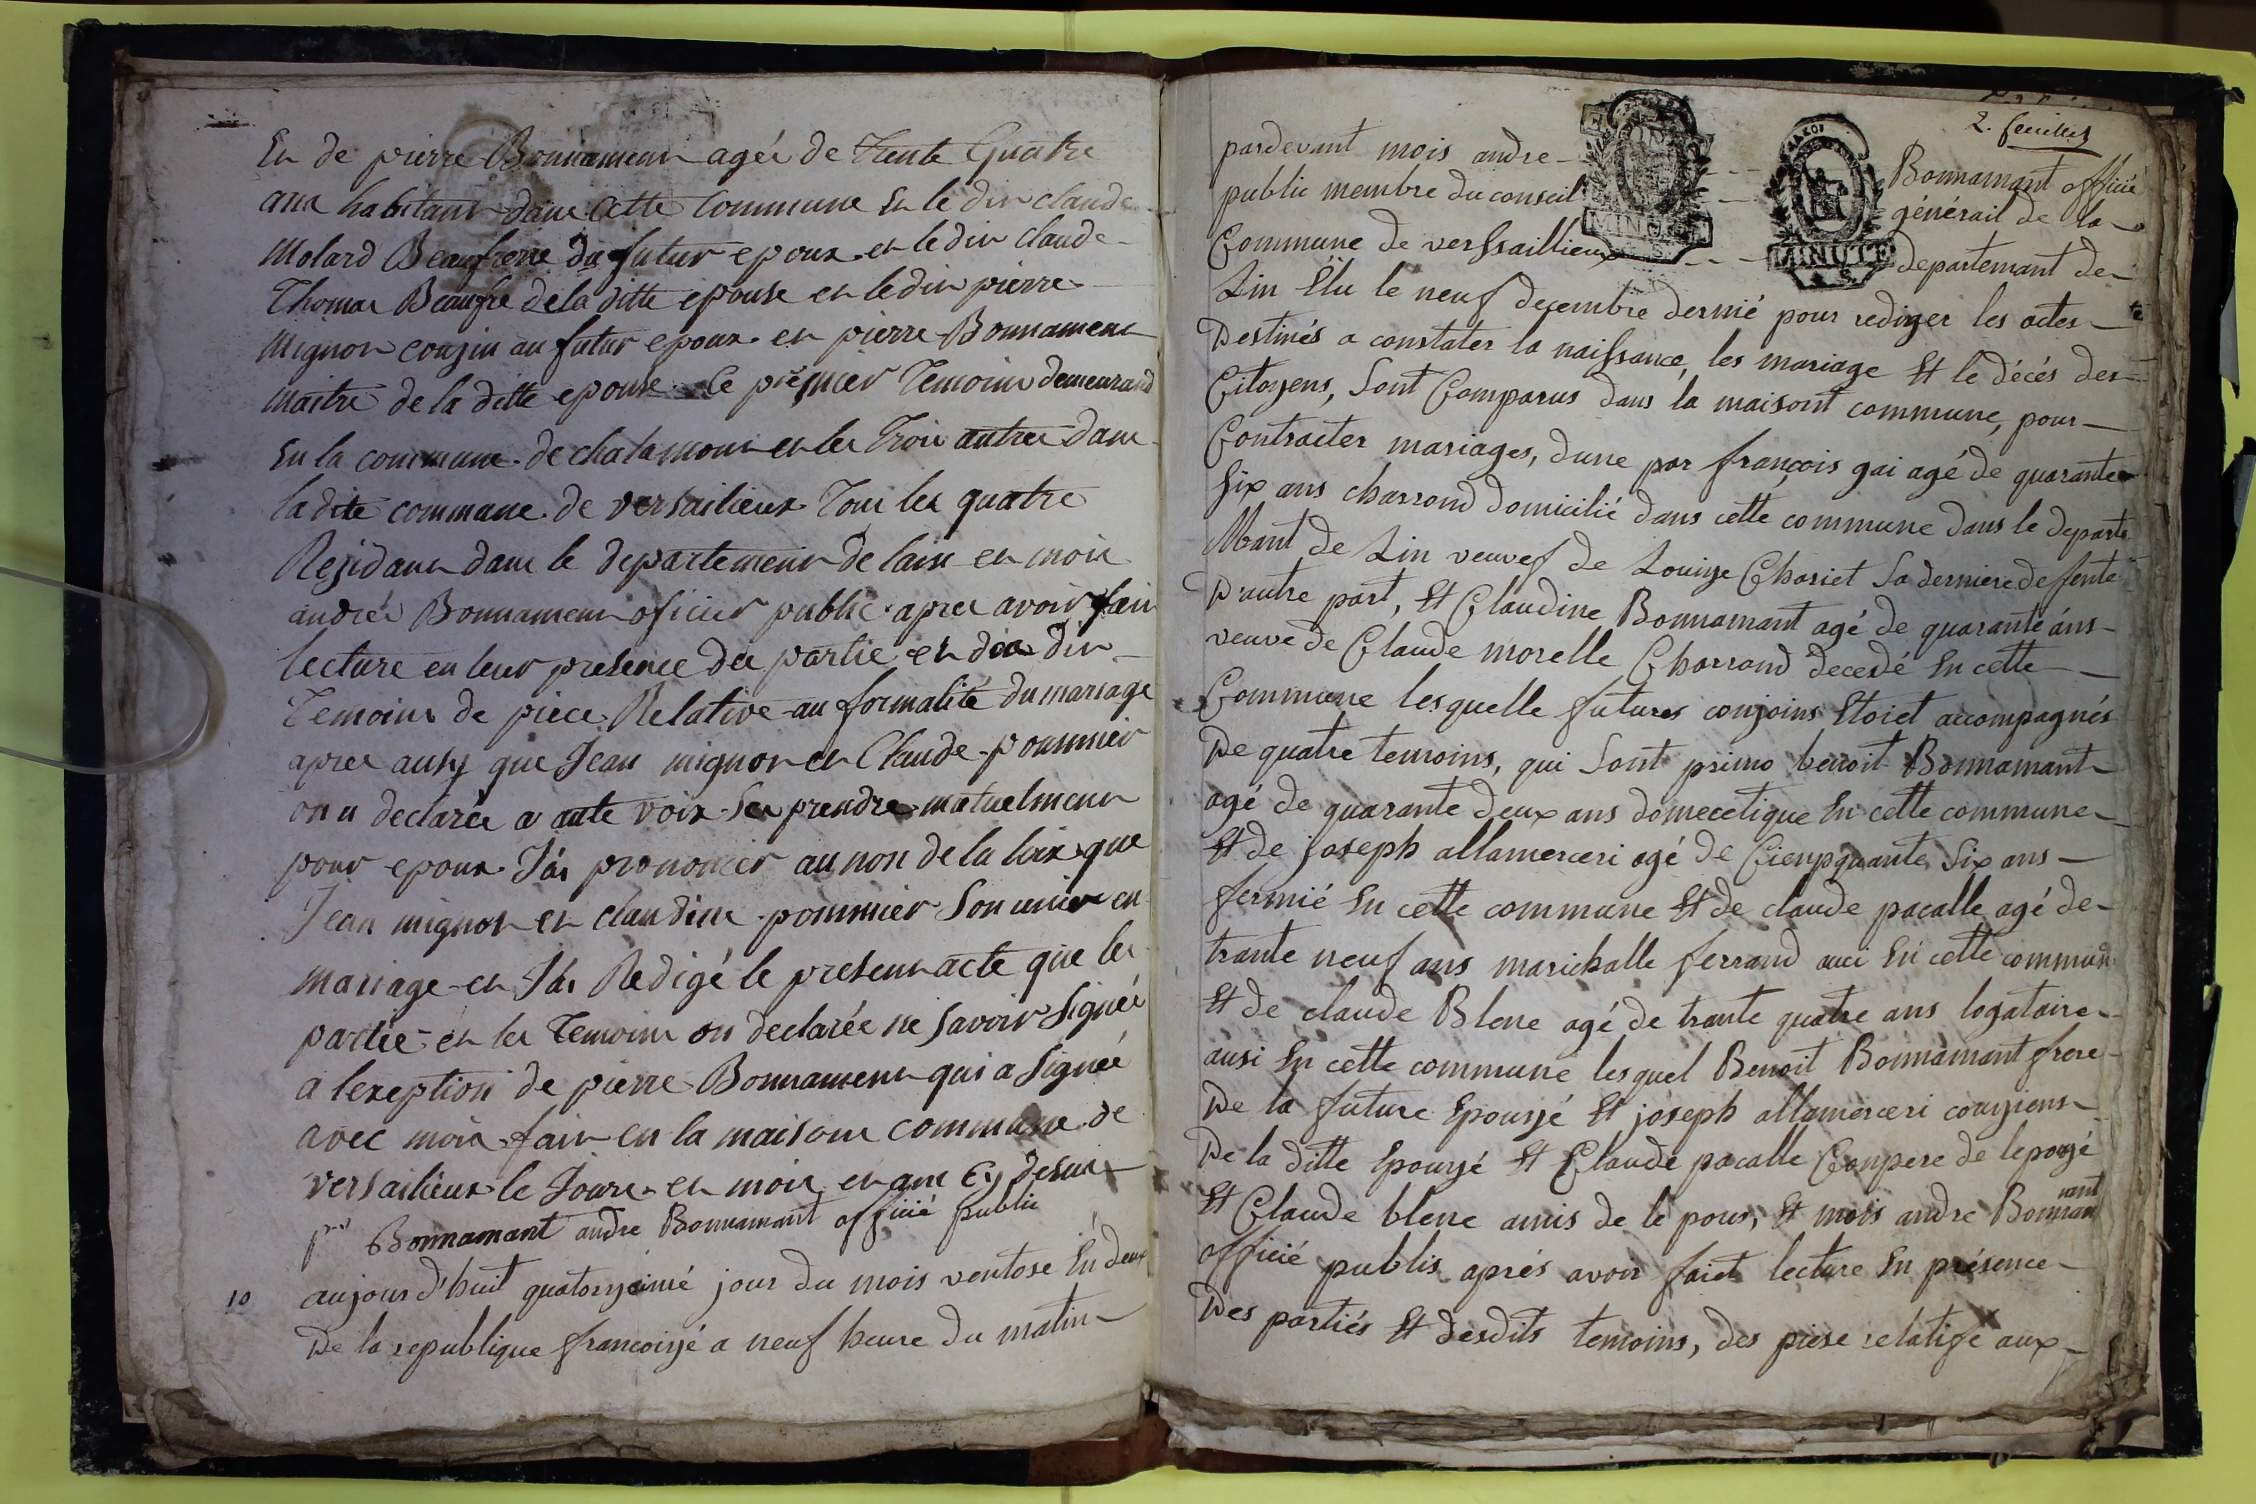 En de pierre Bonnamenn ageé de trente Quatre
ans habitann dans Cette Commune En le din claude
Molard Beaufrere du futur epoux en le din claude
Thomas Beaufre de la ditte epouse en le din pierre
Mignon cousin au futur epoux en pierre Bonnamenn
maitre de la ditte epouse Le premier Temoins demeurand
En la commune de chalamonn en les Trois autres dans
la dite commune de versailieux Tous les quatre
Residann dans le departemenn de lain en mois
andréé Bonnamenn oficier public apres avoir fain
lecture en leur presence des partie en des din
Temoins de piece Relative au formalité du mariage
apres ausy que Jean mignon en Claude pommier
on n declarée a aute voix Ses prendre mutuelmenn
pour epoux J'ás prononcer au non de la loix que
Jean mignon en claudine pommier Son unier en
mariage en J'ás Redigé le presenn acte que les
partie en les Temoins on declarée ne savoir Signée
a lexeption de pierre Bonnamenn qui a Signée
avec mois fain en la maison commune de
versailieux le Joure en mois en ans Cy desus
pre Bonnamant andre Bonnamant officié public
10 aujourd'huit quatorzieimé jour du mois ventose En deux
De la republique francoisjé a neuf heure du matin
2. feuillet
pardevant mois andre Bonnamant officié
public membre du conseil générail de la
Commune de verssaillieux departemant de
Lin Élu le neuf decembre dernié pour rediger les actes
Destinés a constater la naissance, les mariage Et le décés des
Citoyens, Sont Comparus dans la maisont commune, pour
Contracter mariages, dune par françois gai agé de quarante
Six ans charrond domicilié dans cette commune dans le departe
Mant de Lin veuvef de Louise Chariet Sa derniere defente
D'autre part, Et Claudine Bonnamant agé de quarante áns
veuve de Claude morelle Charrand decedé En cette
Commune lesquelle futures conjoins Etoiet accompagnés
De quatre temoins, qui Sont primo benoit Bonnamant
agé de quarante deux ans domecetique En cette commune
Et de joseph allamerceri agé de Cienpquante Six ans
fermié En cette commune Et de claude pacalle agé de
trante neuf ans marichalle ferrand auci En cette commun
Et de claude Blene agé de trante quatre ans logataire
ausi En cette commune lesquel Benoit Bonnamant frere
De la future Epousjé Et joseph allamerceri cousiens
De la ditte Epousjé Et Claude pacalle Compere de leposjé
Et Claude blene amis de le pous, Et mois andre Bonnamant
officié publis aprés avoir faiet lecture En présence
Des partiés Et desdits temoins, des piese relatife aux
MINUTE
MINUTE